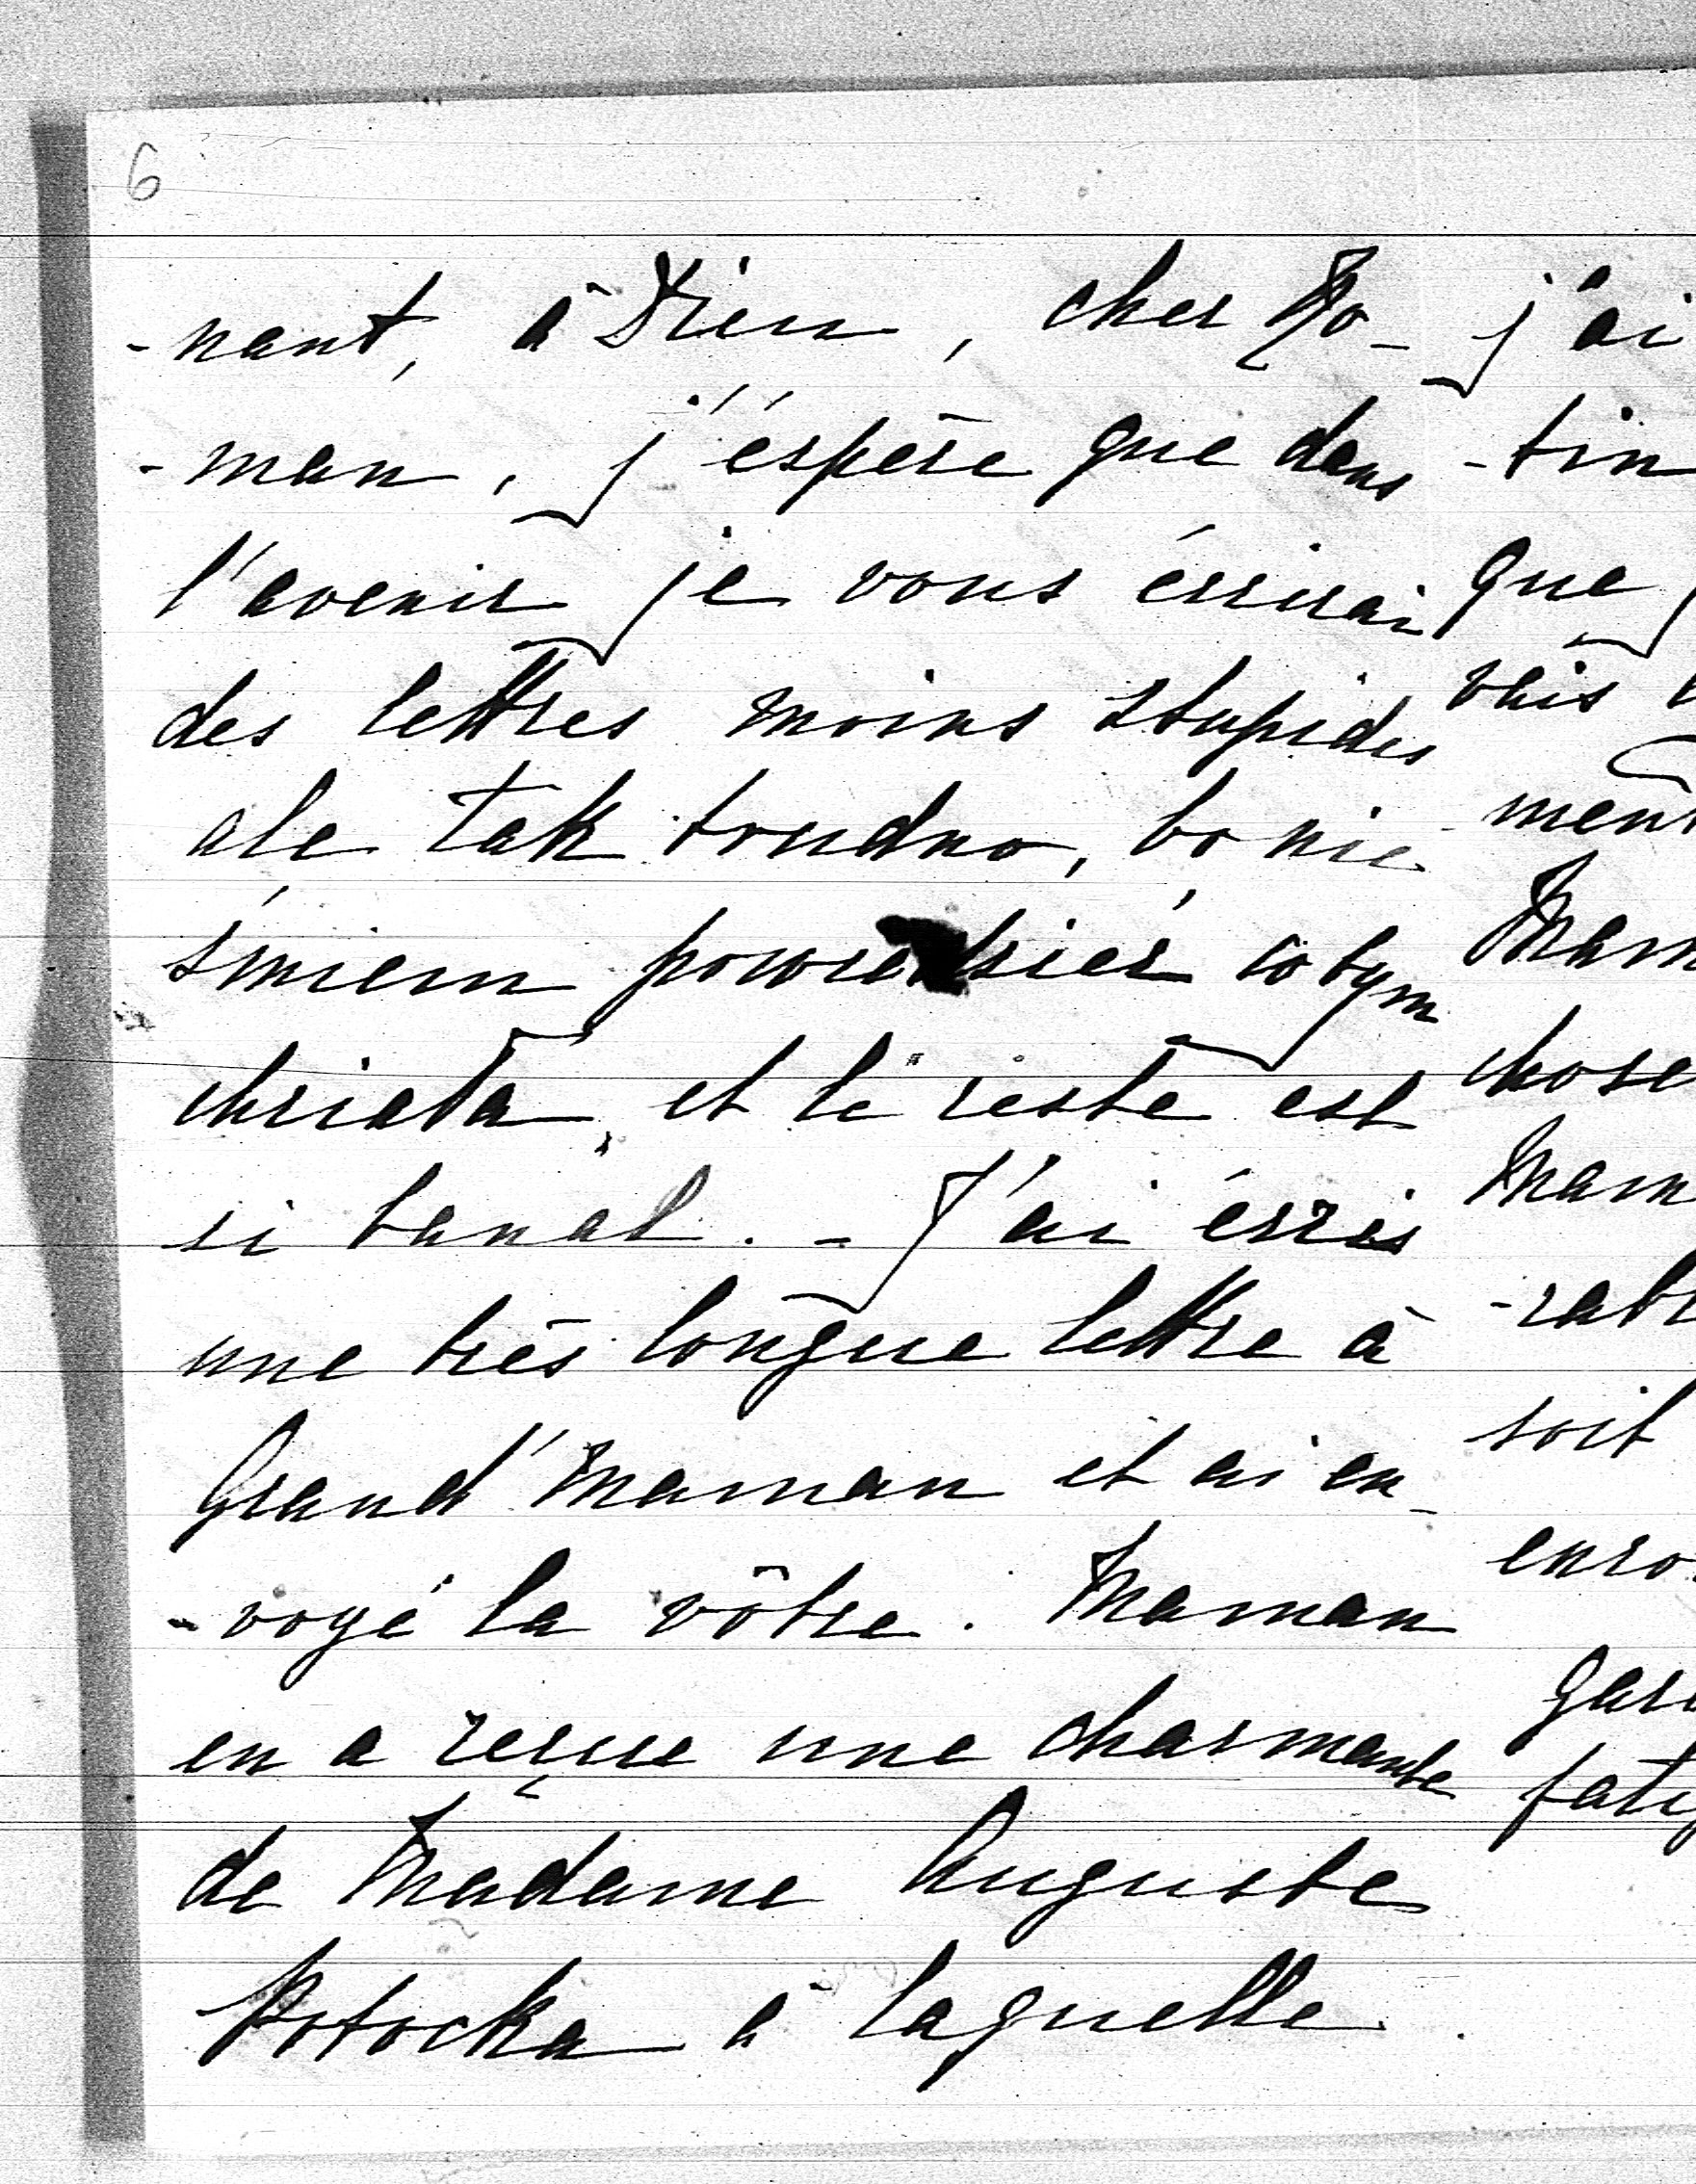 6
-nant, à Dieu, cher Ro-
-man, j'éspère que dans
l'avenir je vous écrirai
des lettres moins stupides
ale tak trudno, bo nie
śmiem powiedzieć cobym
chciała, et le reste est
si banal. - J'ai écris
une très longue lettre à
Grand'Maman et ai en-
-voyé la vôtre. Maman
en a reçue une charmante
de Madame Auguste
Potocka à laquelle
j'ai
-tin
que
vais
ment
Mam
chose
Mam
-rab
soit
enro
gar
fati